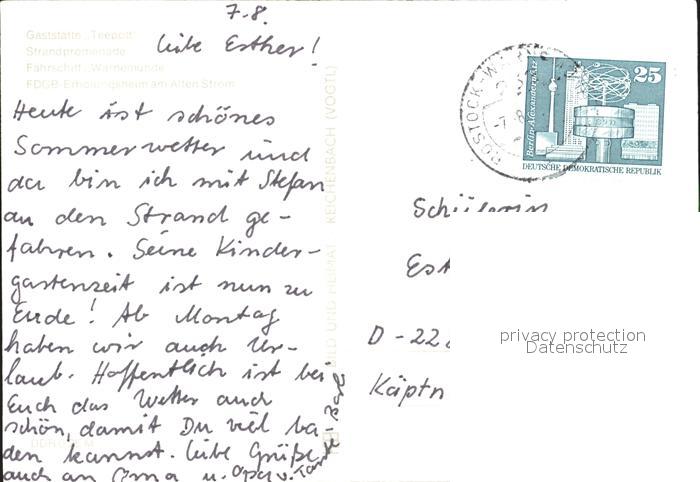 7.8.
Liebe Esther!
Gaststätte „Teepott“
Strandpromenade
Fahrschiff „Warnemünde“
FDGB-Erholungsheim am Alten Strom
Heute ist schönes
Sommerwetter und
da bin ich mit Stefan
an den Strand ge-
fahren. Seine Kinder-
gartenzeit ist nun zu
Ende! Ab Montag
haben wir auch Ur-
laub. Hoffentlich ist bei
Euch das Wetter auch
schön, damit Du viel ba-
den kannst. Liebe Grüße,
auch an Oma u. Opa v. Tante
BILD UND HEIMAT REICHENBACH (VOGTL)
ROSTOCK-WARNE
-7.8
25
Berlin-Alexanderplatz
DEUTSCHE DEMOKRATISCHE REPUBLIK
Schülerin
Est
D-22
Käptn
privacy protection
Datenschutz